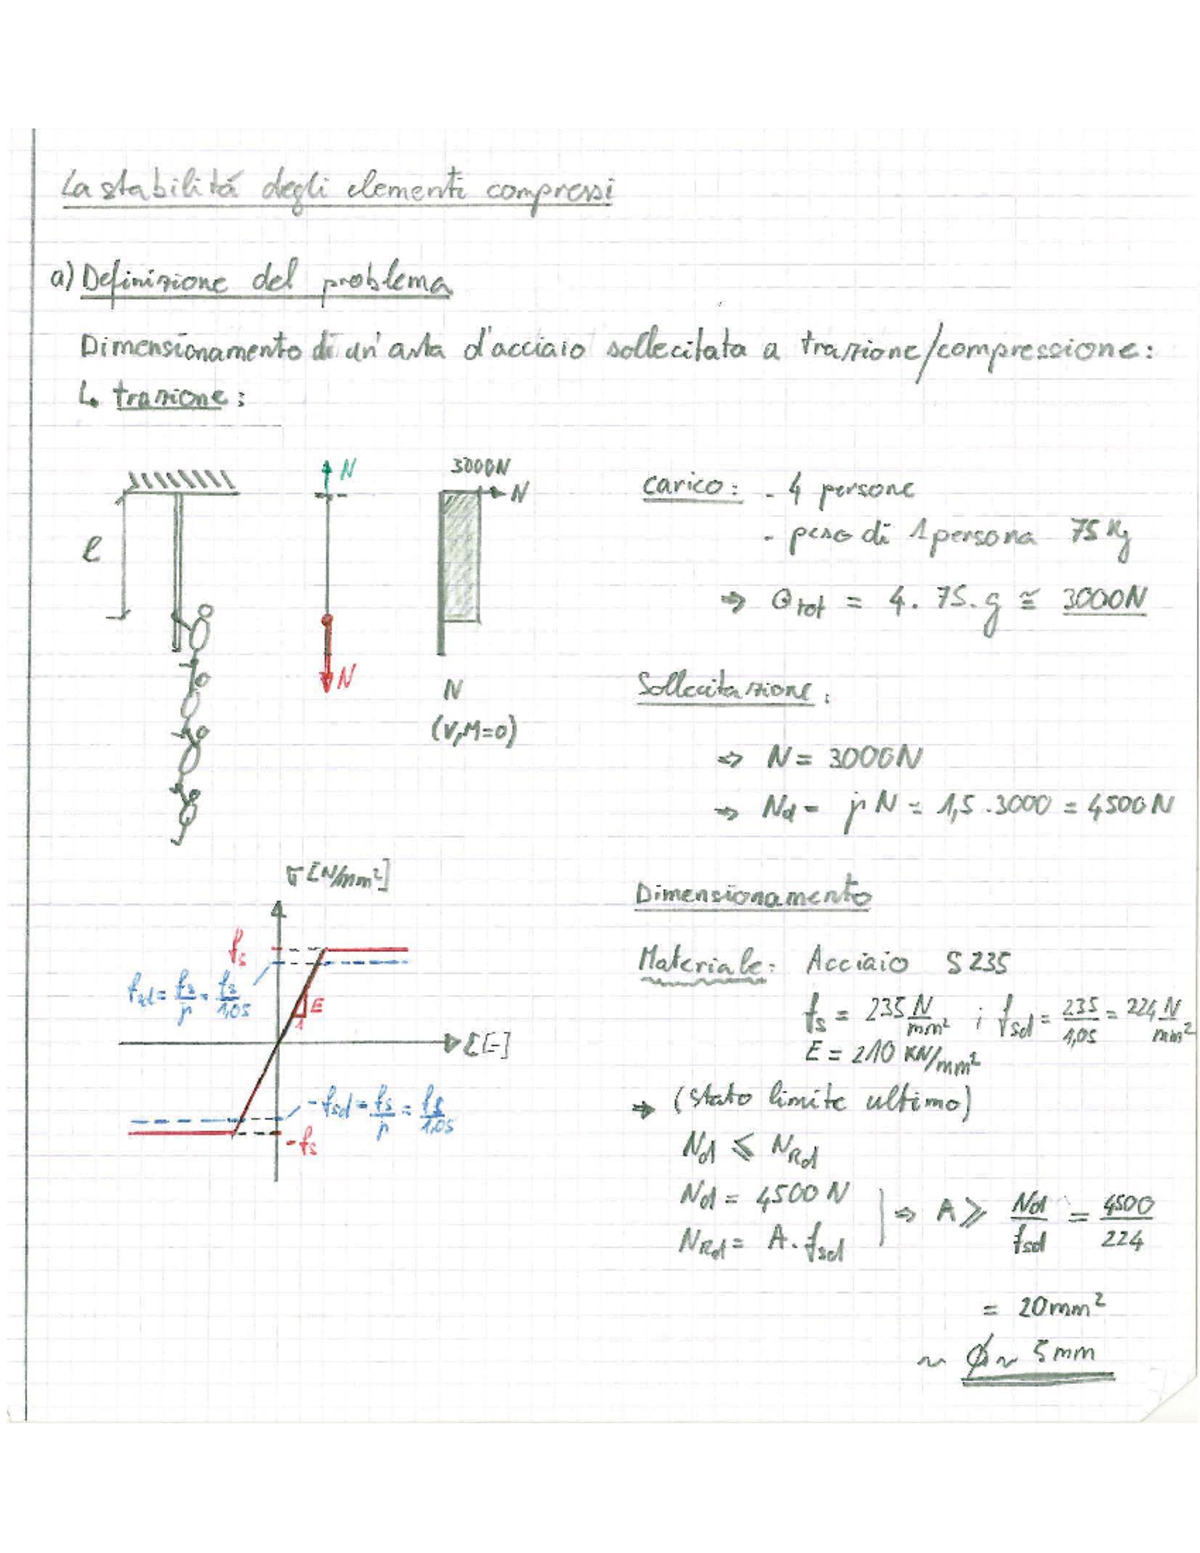 La stabilitá degli elementi compressi
a) Definizione del problema
Dimensionamento di un'asta d'acciaio sollecitata a trazione/compressione:
↳ trazione:
l
N
N
3000N
N
N
(V,M=0)
carico: - 4 persone
- peso di 1 persona 75 Kg
⇒ Qtot = 4 · 75 · g ≅ 3000N
Sollecitazione:
⇒ N = 3000N
⇒ Nd = γ N = 1,5 · 3000 = 4500N
σ [N/mm²]
fs
fsd = fs/γ = fs/1,05
E
1
ε[-]
-fsd = fs/γ = fs/1,05
-fs
Dimensionamento
Materiale: Acciaio S 235
fs = 235 N/mm² ; fsd = 235/1,05 = 224 N/mm²
E = 210 KN/mm²
⇒ (stato limite ultimo)
Nd ≤ NRd
Nd = 4500 N
NRd = A · fsd
⇒ A ≥ Nd/fsd = 4500/224
= 20mm²
~ Ø ~ 5mm